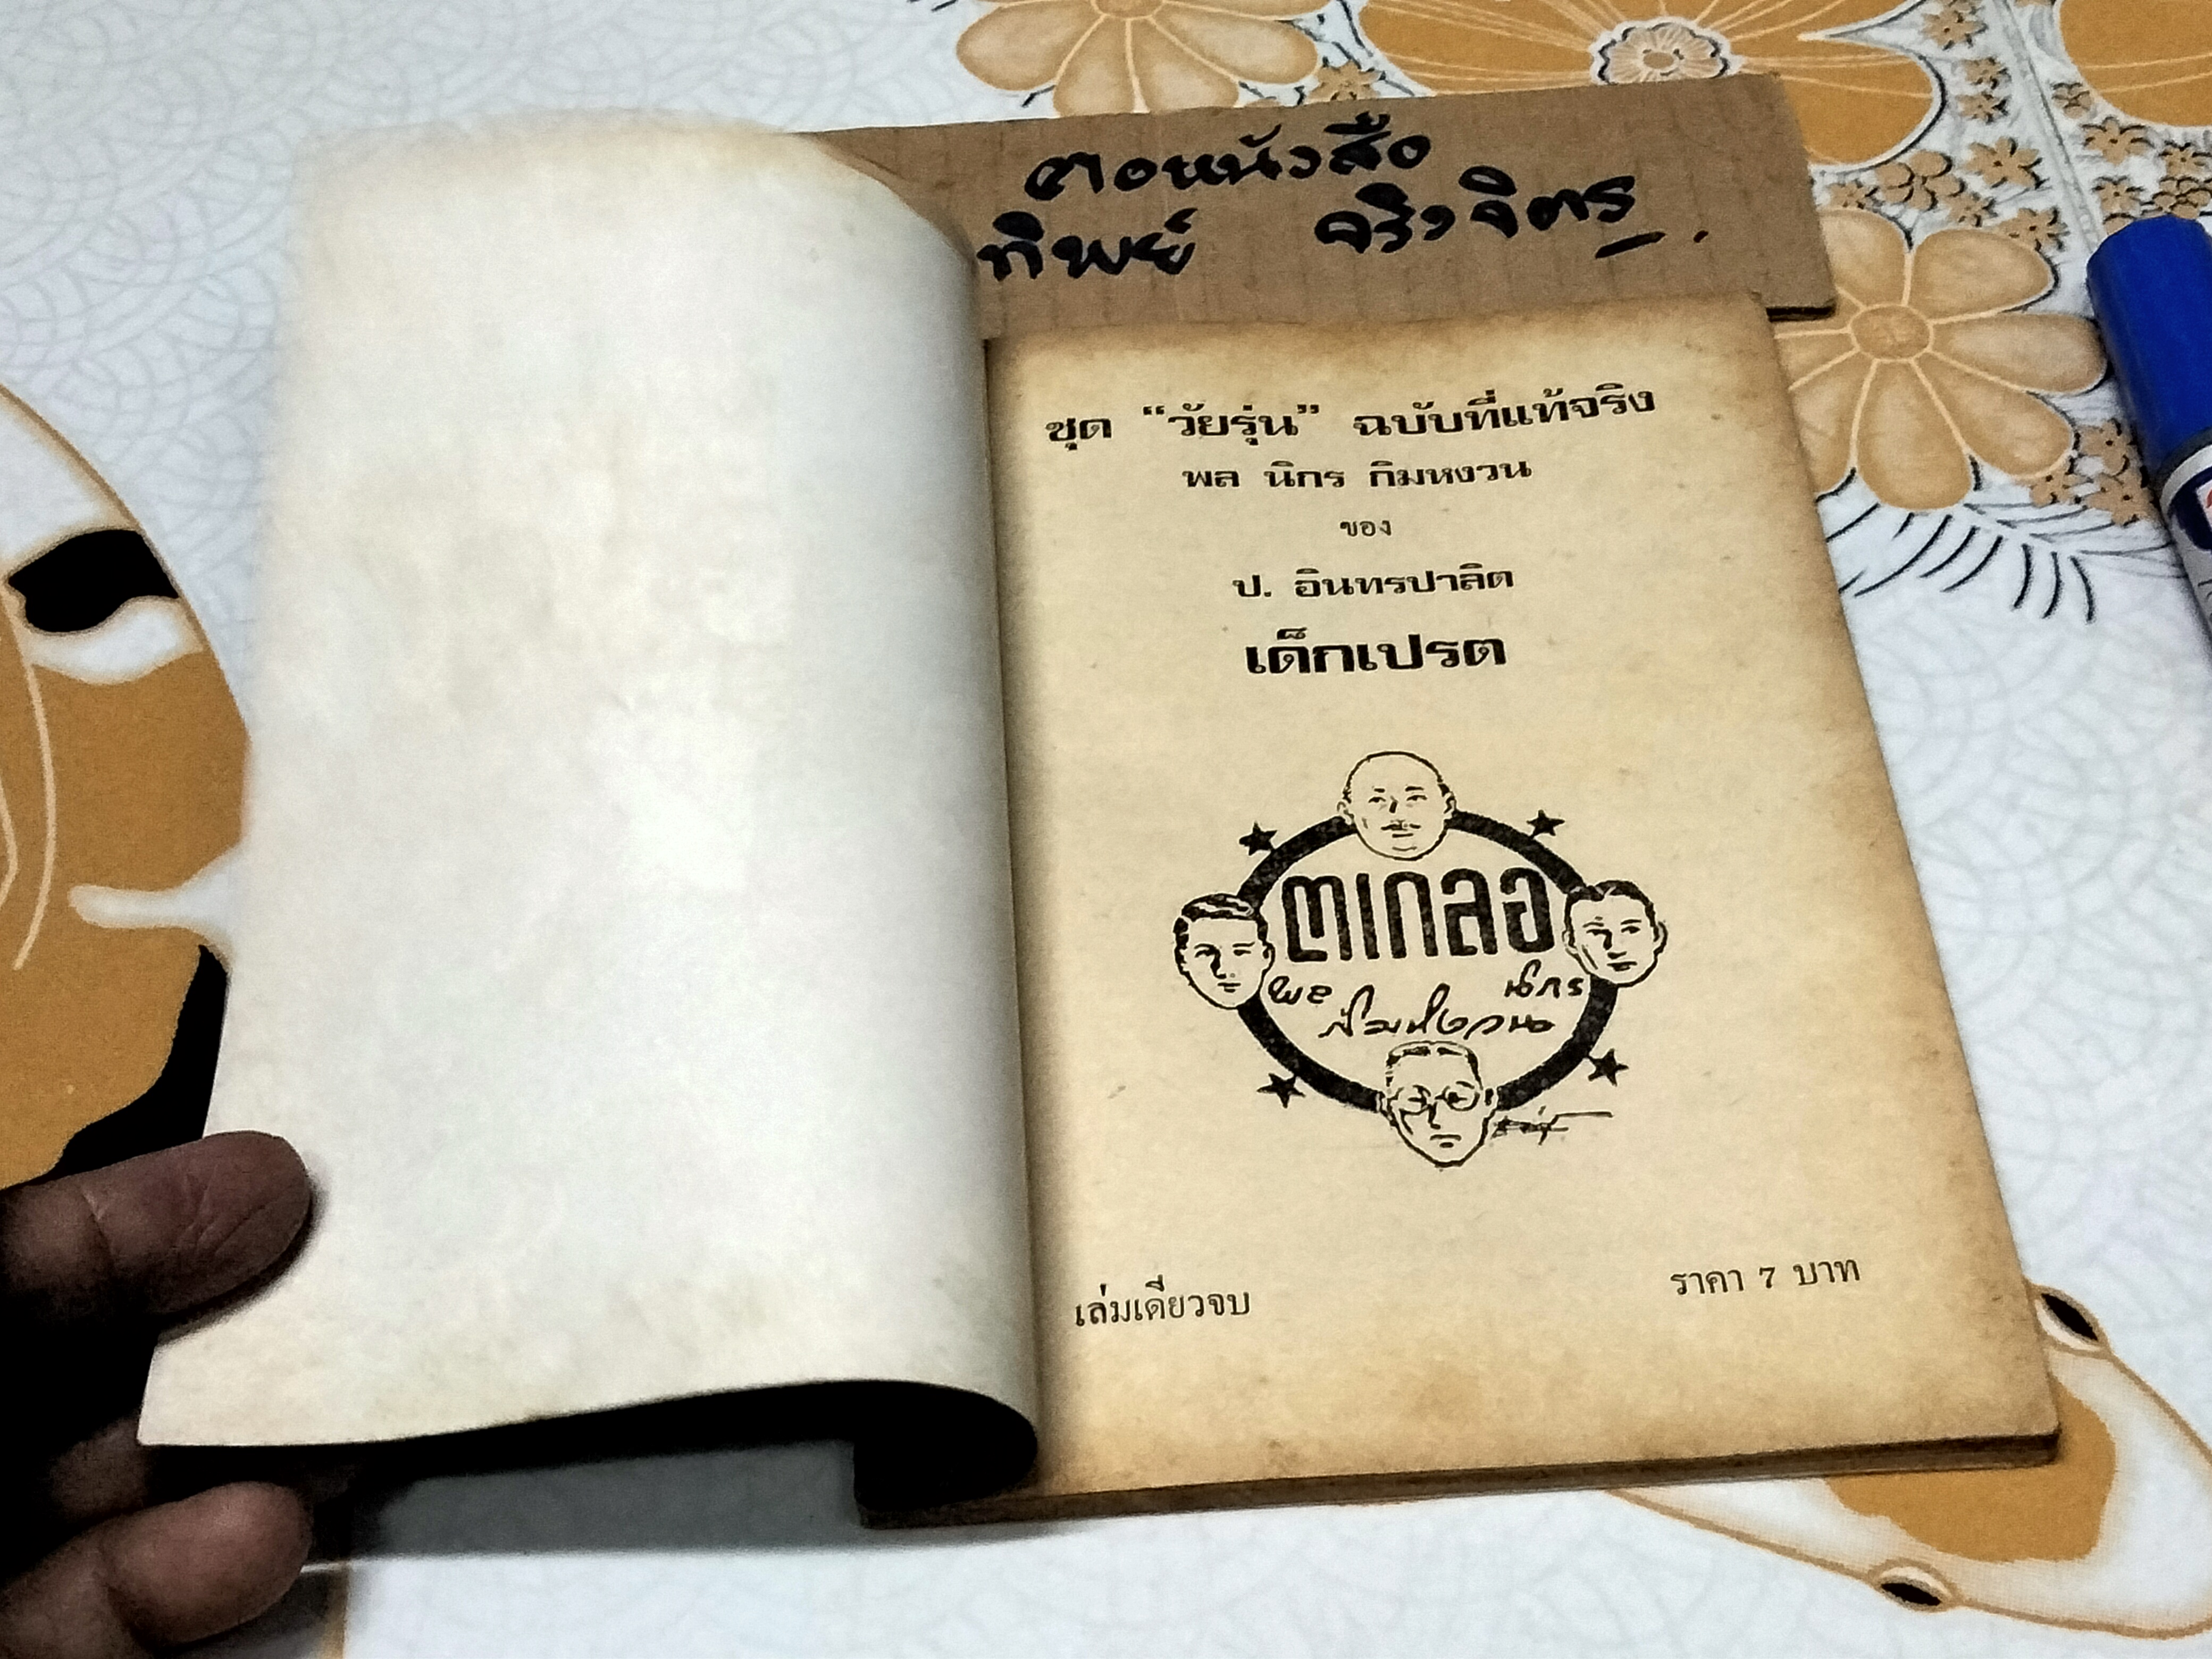 คอหนังสือ
ทิพย์ จริงจิตร
ชุด “วัยรุ่น” ฉบับที่แท้จริง
พล นิกร กิมหงวน
ของ
ป. อินทรปาลิต
เด็กเปรต
๓เกลอ
พล นิกร
กิมหงวน
เล่มเดียวจบ ราคา 7 บาท